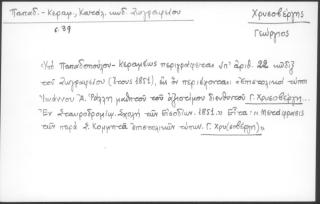 Παπαδ.-Κεραμ., Κατάλ. κωδ. Ζωγραφείου
σ. 39
Χρυσοβέργης
Γεώργιος
«Ὑπὸ Παπαδοπούλου-Κεραμέως περιγράφεται ὑπ' ἀριθ. 22 κώδιξ
τοῦ Ζωγραφείου (ἔτους 1851), ἐν ᾧ περιέχονται: «Ἐπιστολικοὶ τύποι
Ἰωάννου Α. Ράλλη μαθητοῦ τοῦ ἀξιοτίμου διευθυντοῦ Γ. Χρυσοβέργη...
Ἐν Σταυροδρομίῳ. Σχολὴ τῶν Εἰσοδίων. 1851.» Εἶτα: «Μετάφρασις
τῶν παρὰ Σ. Κομμητᾶ ἐπιστολικῶν τύπων. Γ. Χρυ(σοβέργη)»